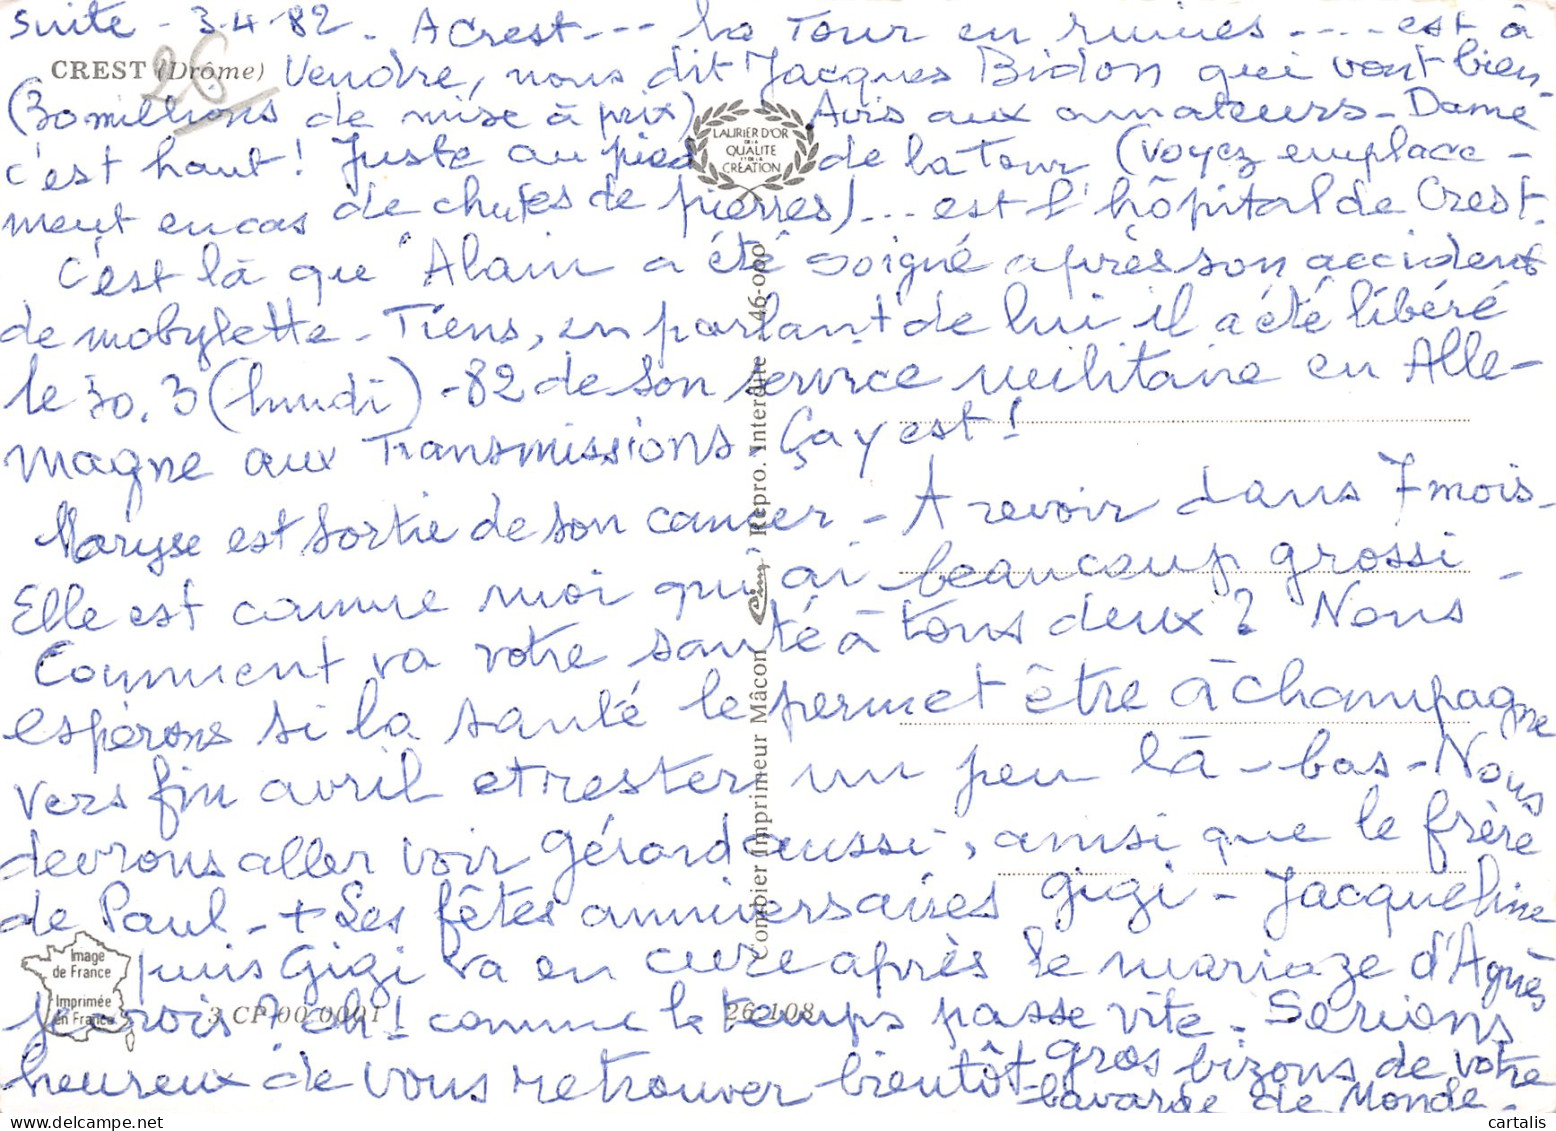 Suite - 3-4-82. A Crest --- la Tour en ruines ---- est à
26
CREST (Drôme)
Vendre, nous dit Jacques Bidon qui vont bien
(30 millions de mise à prix). Avis aux amateurs - Dame
LAURIER D'OR
DE LA
QUALITE
ET DE LA
CREATION
c'est haut! Juste au pied de la Tour (voyez emplace-
ment en cas de chutes de pierres) ... est l'hôpital de Crest.
C'est là que Alain a été soigné après son accident
de mobylette - Tiens, en parlant de lui il a été libéré
le 30.3 (lundi) -82 de son service militaire en Alle-
magne aux Transmissions. Ça y est!
Maryse est sortie de son cancer - A revoir dans 7 mois -
Elle est comme moi qui ai beaucoup grossi -
Comment va votre santé à tous deux? Nous
espérons si la santé le permet être à Champagne
vers fin avril et rester un peu là-bas - Nous
devrons aller voir Gérard aussi, ainsi que le frère
de Paul - + Les fêtes anniversaires Gigi - Jacqueline
puis Gigi va en cure après le mariage d'Agnès
je crois? oh! comme le temps passe vite. Serions
heureux de vous retrouver bientôt - gros bizons de votre
bavarde de Monde -
Combier Imprimeur Mâcon Cim Repro. Interdite 46-000
Image
de France
Imprimée
en France
3 CP 00 0001
26.108
cartalis